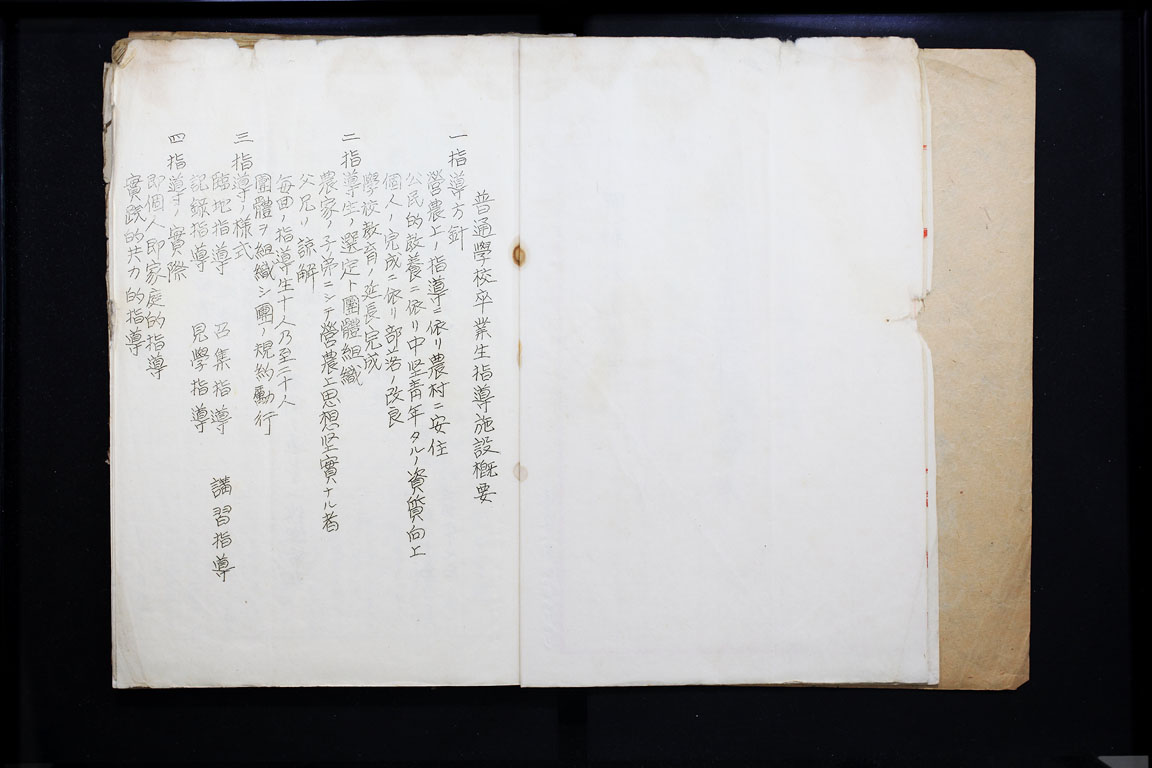 普通學校卒業生指導施設概要
一 指導方針
營農上ノ指導ニ依リ農村ニ安住
公民的敎養ニ依リ中堅靑年タルノ資質向上
個人ノ完成ニ依リ部落ノ改良
學校敎育ノ延長完成
二 指導生ノ選定ト團體組織
農家ノ子弟ニシテ營農上思想堅實ナル者
父兄ノ諒解
每回ノ指導生十人乃至二十人
團體ヲ組織シ團ノ規約勵行
三 指導ノ樣式
臨地指導 召集指導 講習指導
記錄指導 見學指導
四 指導ノ實際
卽個人卽家庭的指導
實踐的共力的指導